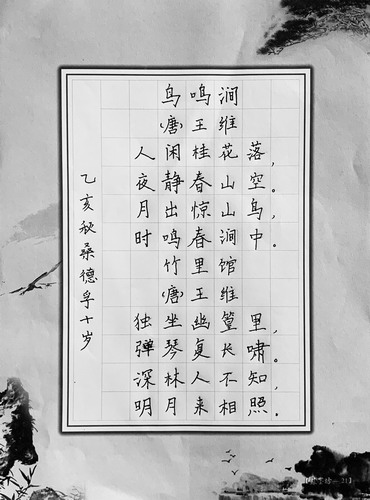 鸟鸣涧
(唐)王维
人闲桂花落，
夜静春山空。
月出惊山鸟，
时鸣春涧中。
竹里馆
(唐)王维
独坐幽篁里，
弹琴复长啸。
深林人不知，
明月来相照。
乙亥秋桑德孚十岁